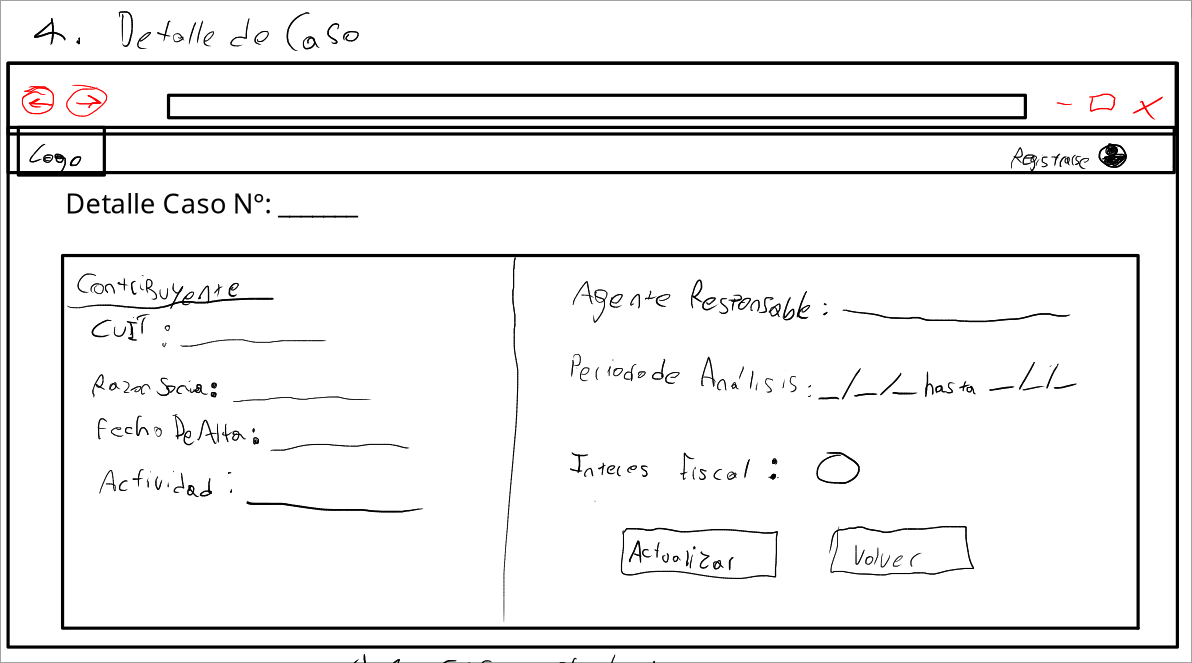 4. Detalle de Caso
Logo
Registrarse
Detalle Caso Nº: _______
Contribuyente
CUIT :
Razon Social:
Fecha De Alta:
Actividad :
Agente Responsable :
Periodo de Análisis: _/_/_ hasta _/_/_
Interes Fiscal :
Actualizar
Volver